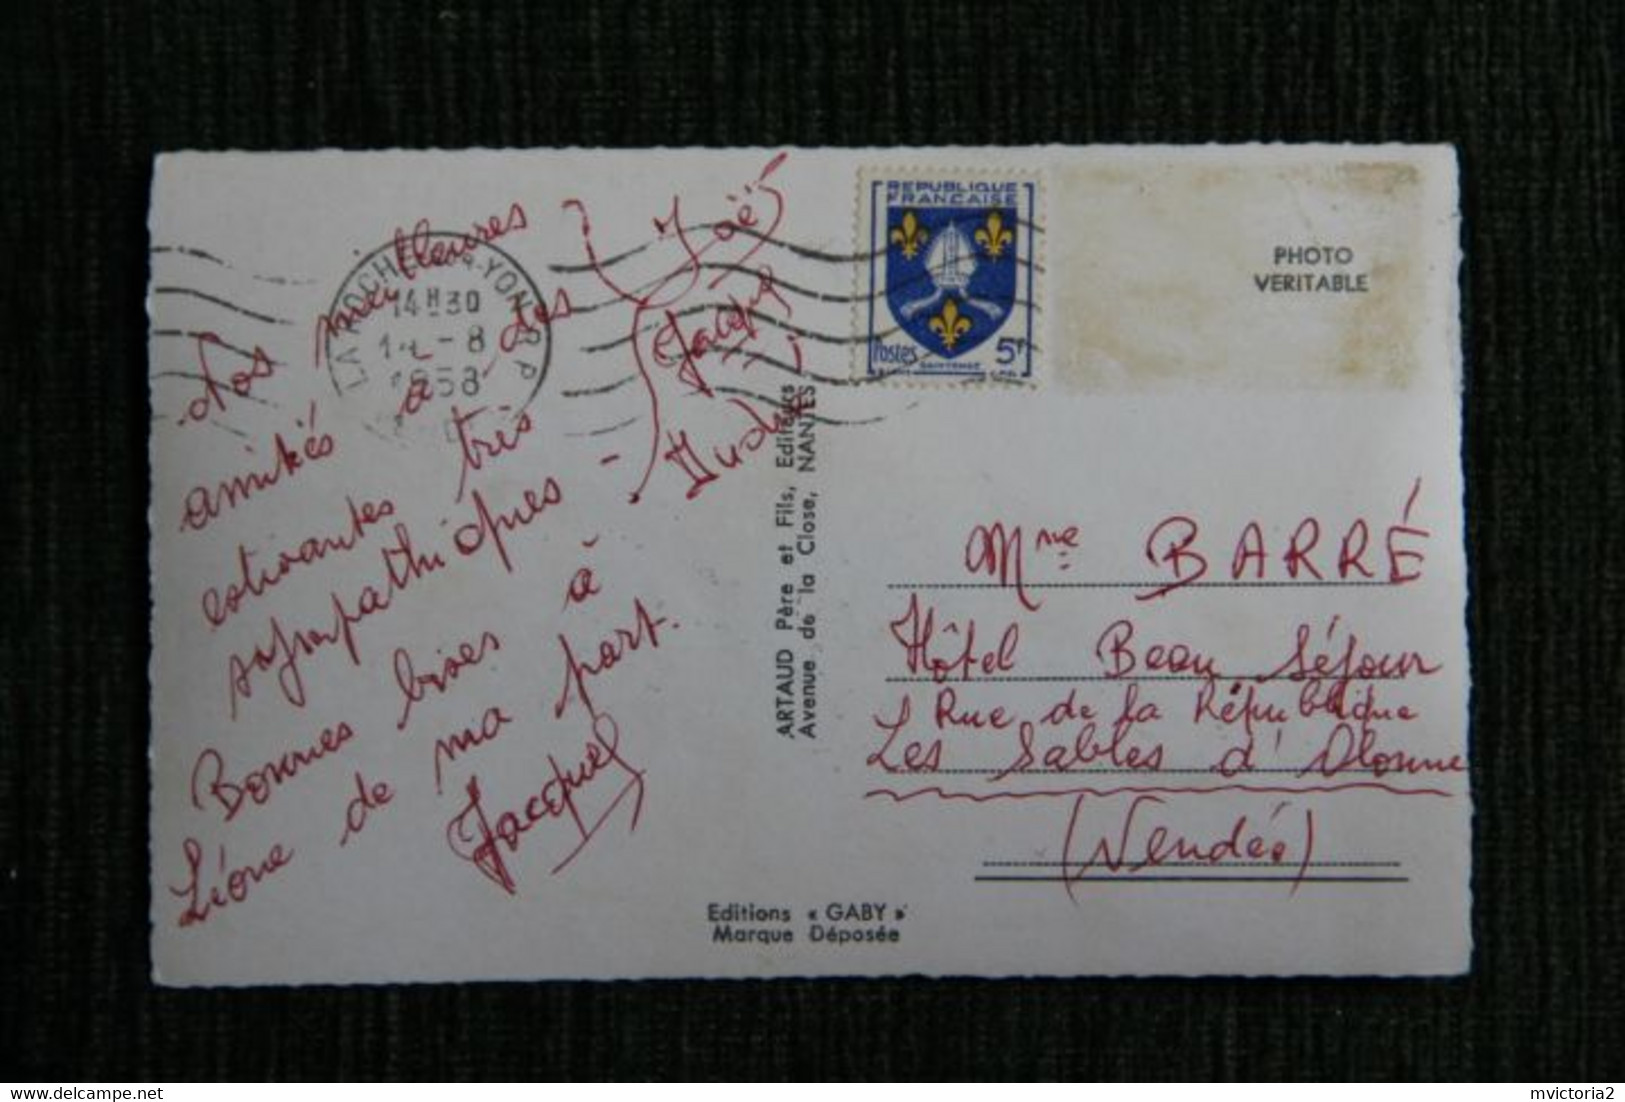 Nos meilleures
amitiés à des
estivantes très
sympathiques -
Bonnes bises à
Léone de ma part.
Jacques
Joë
Jacques
LA ROCHE-SUR-YON R.P
14H30
14 - 8
1958
REPUBLIQUE
FRANCAISE
Postes 5F
SAINTONGE
PHOTO
VERITABLE
ARTAUD Père et Fils, Editeurs
Avenue de la Close, NANTES
Mme BARRÉ
Hôtel Beau Séjour
Rue de la République
Les Sables d'Olonne
(Vendée)
Editions « GABY »
Marque Déposée
mvictoria2